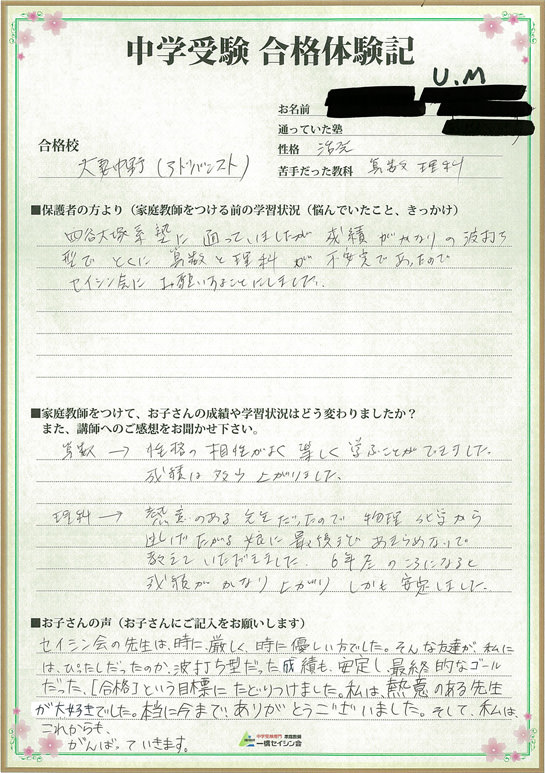 中学受験 合格体験記
U.M
お名前
通っていた塾
合格校
性格 活発
大妻中野(アドバンスト)
苦手だった教科 算数 理科
■保護者の方より(家庭教師をつける前の学習状況(悩んでいたこと、きっかけ)
四谷大塚系塾に通っていましたが 成績がかなりの波打ち
型で とくに 算数と理科が 不安定であったので
セイシン会に お願いすることにしました。
■家庭教師をつけて、お子さんの成績や学習状況はどう変わりましたか?
また、講師へのご感想をお聞かせ下さい。
算数 → 性格の相性がよく 楽しく 学ぶことができました。
成績は 上がりました。
理科 → 熱意のある 先生だったので 物理 化学から
逃げたがる 娘に 最後まで あきらめないで
教えて いただきました. 6年生 のころになると
成績が かなり 上がり しかも 安定しました.
■お子さんの声(お子さんにご記入をお願いします)
セイシン会の先生は、時に、厳しく、時に優しい方でした。そんな友達が、私に
は、ぴったしだったのか、波打ち型だった成績も、安定し、最終的なゴール
だった、[合格]という目標にたどりつけました。私は、熱意のある先生
が大好きでした。本当に今まで、ありがとうございました。そして、私は、
これからも、
がんばっていきます。
中学受験専門 家庭教師
一橋セイシン会